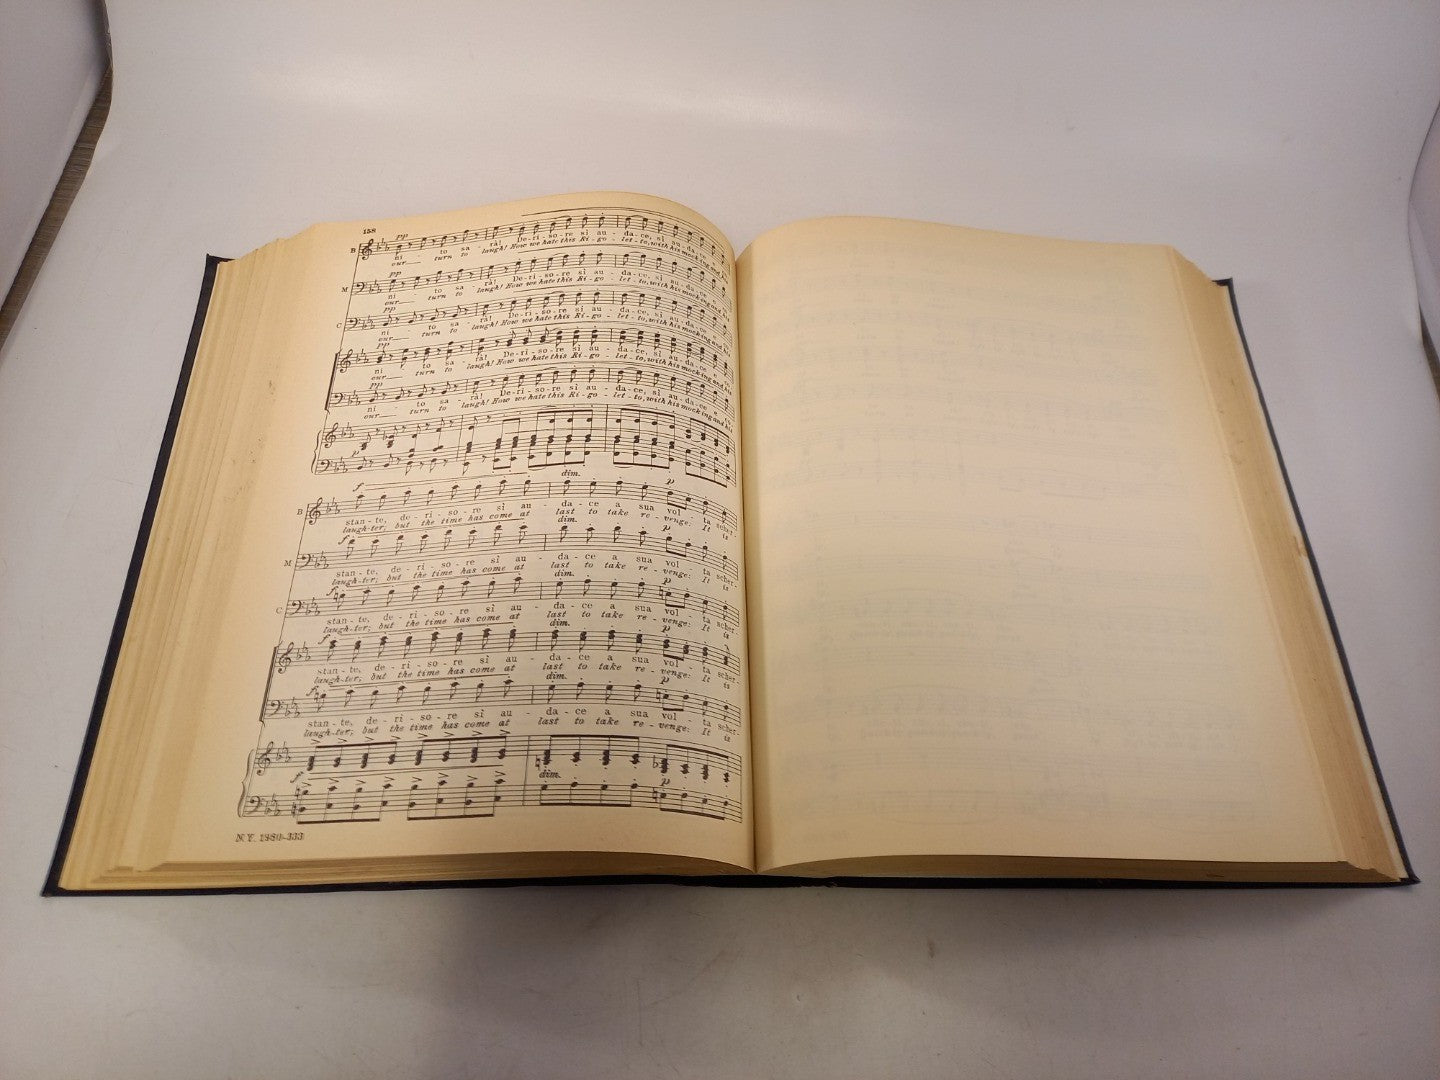 158
pp
B
ni - to sa - rà! De - ri - so - re sì au - da - ce, sì au - da - ce, co -
our turn to laugh! How we hate this Ri - go - let - to, with his mocking and his
pp
M
ni to sa - rà! De - ri - so - re sì au - da - ce, sì au - da - ce
our turn to laugh! How we hate this Ri - go - let - to, with his mocking and his
pp
C
ni to sa - rà! De - ri - so - re sì au - da - ce, sì au - da - ce
our turn to laugh! How we hate this Ri - go - let - to, with his mocking and
pp
ni - to sa - rà! De - ri - so - re sì au - da - ce, sì au - da - ce
our turn to laugh! How we hate this Ri - go - let - to, with his mocking and
pp
ni - to sa - rà! De - ri - so - re sì au - da - ce, sì au - da - ce
our turn to laugh! How we hate this Ri - go - let - to, with his mocking and his
p
f dim. p
B
stan - te, de - ri - so - re sì au - da - ce a sua vol - ta scher -
laugh-ter; but the time has come at last to take re - venge: It is
f dim. p
M
stan - te, de - ri - so - re sì au - da - ce a sua vol - ta scher -
laugh-ter; but the time has come at last to take re - venge: It is
f dim. p
C
stan - te, de - ri - so - re sì au - da - ce a sua vol - ta scher -
laugh-ter; but the time has come at last to take re - venge: It is
f dim. p
stan - te, de - ri - so - re sì au - da - ce a sua vol - ta scher -
laugh-ter; but the time has come at last to take re - venge: It is
f dim. p
stan - te, de - ri - so - re sì au - da - ce a sua vol - ta scher -
laugh-ter; but the time has come at last to take re - venge: It is
f dim. p
N.Y. 1980-333